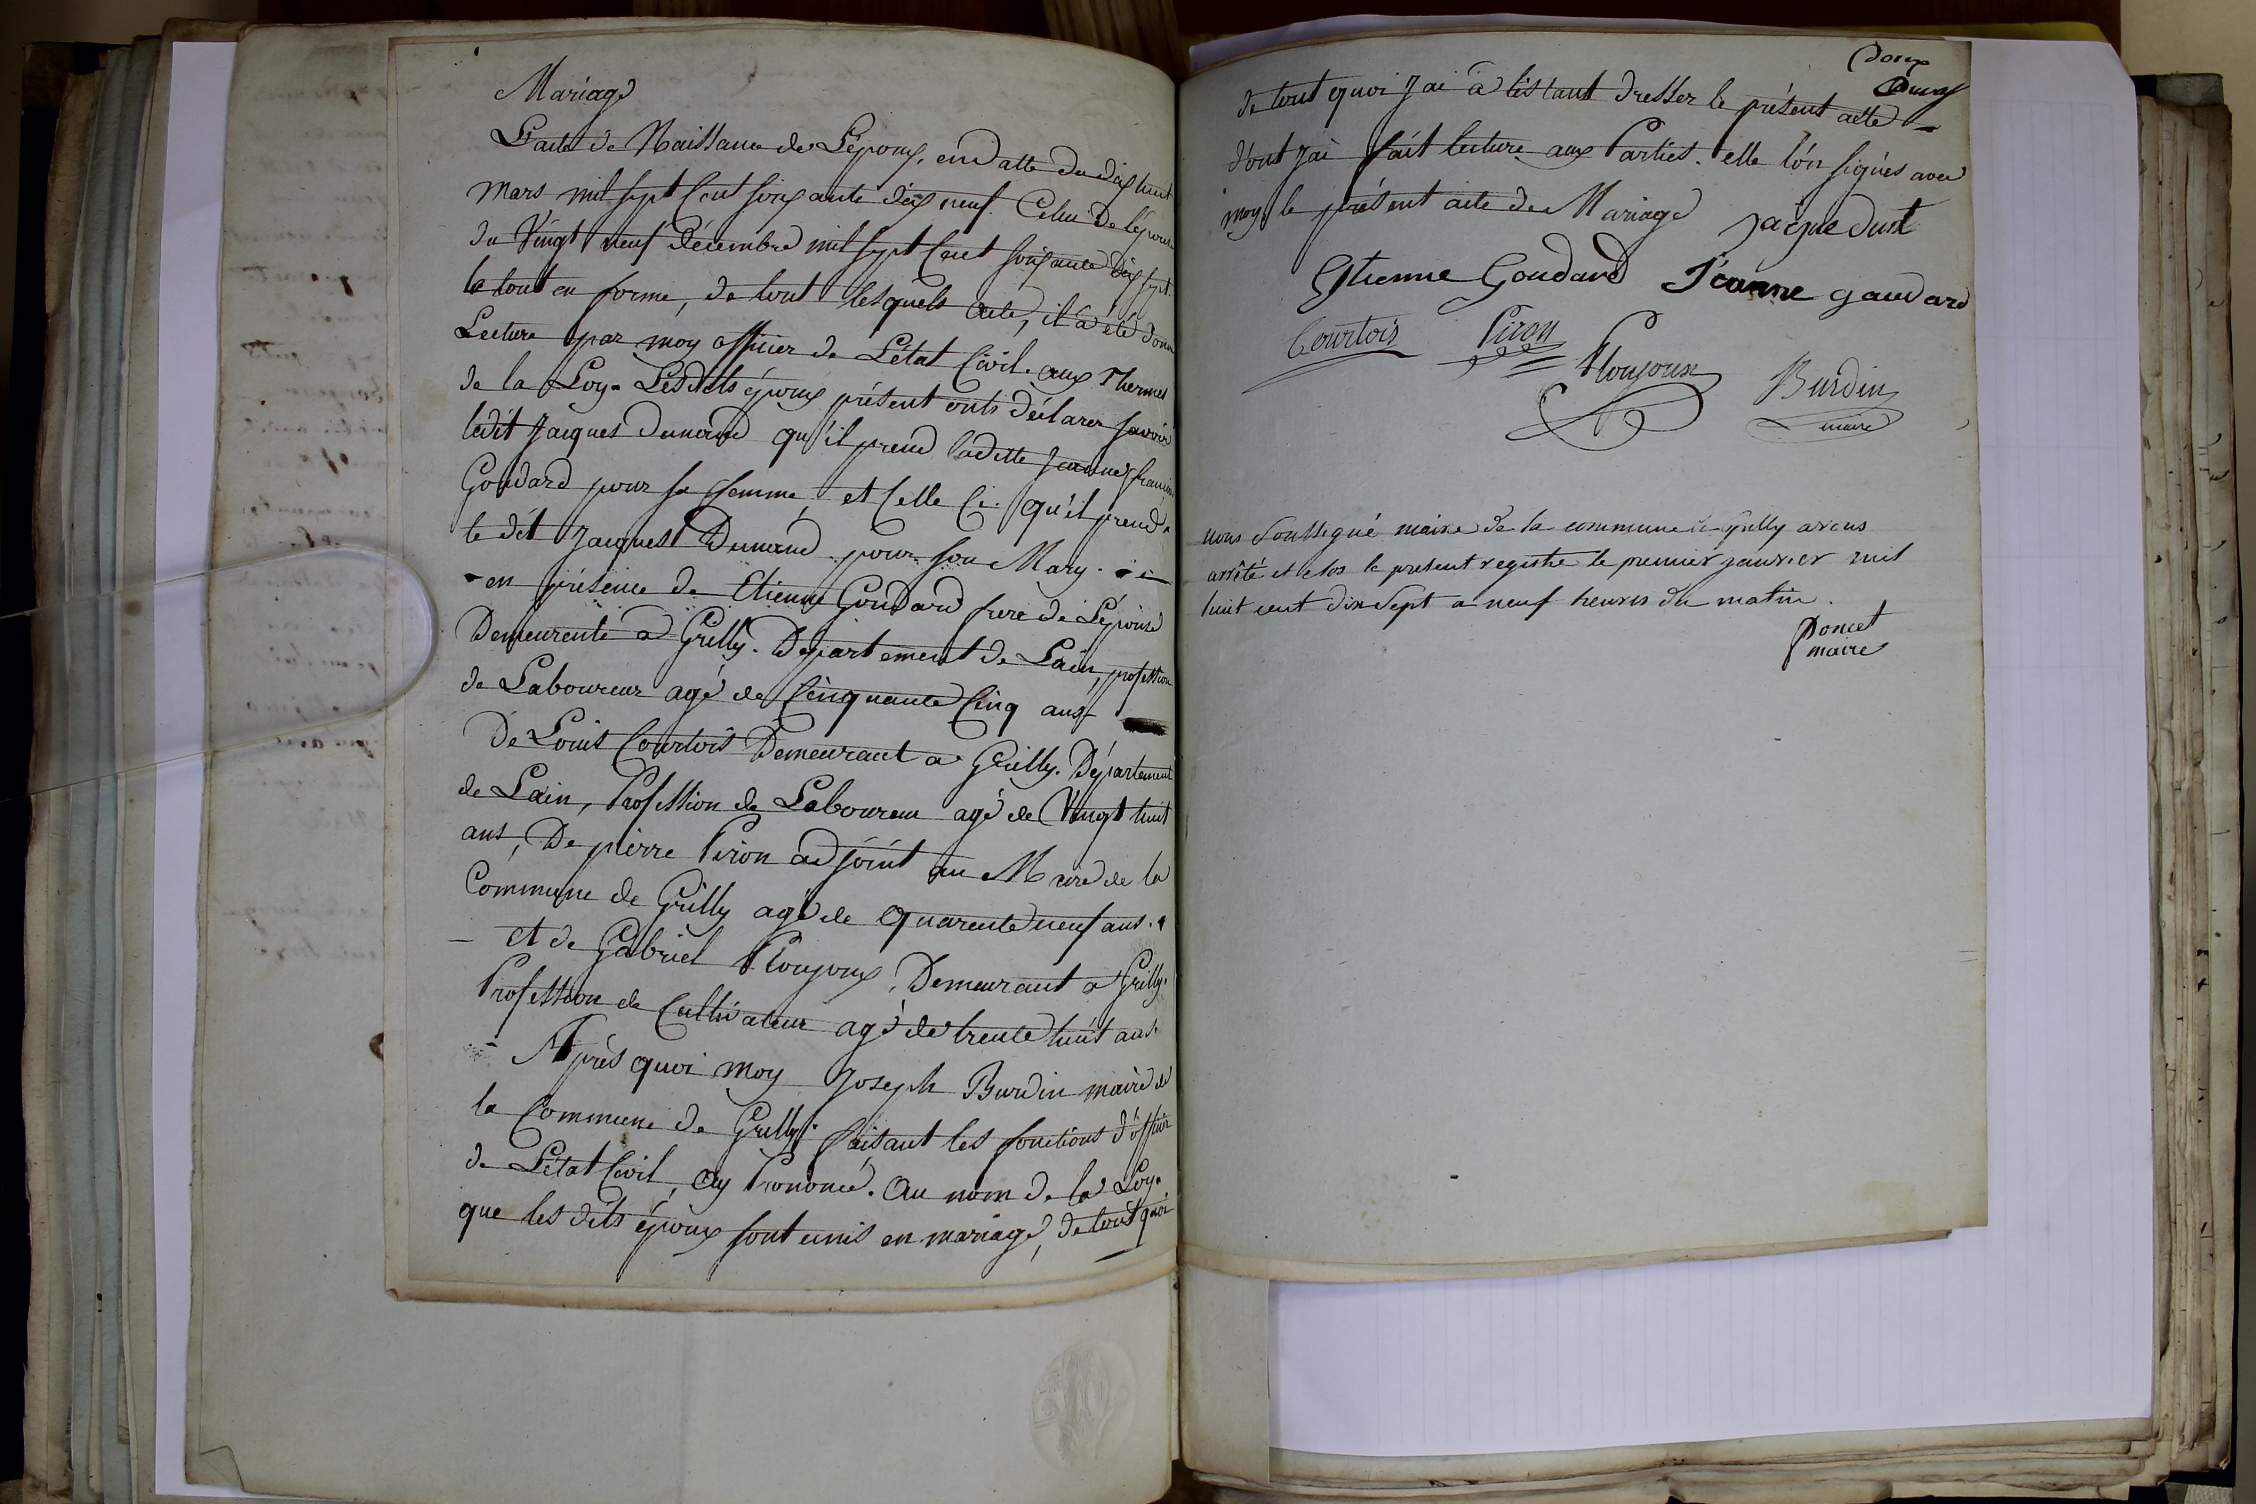 Mariage
L'acte de Naissance de L'epoux, en datte du dix huit
Mars mil sept Cent soixante dix neuf. Celui De l'épouse
du Vingt neuf décembre mil sept Cent soixante dix sept.
le tout en forme, de tout lesquels acte, il a été donné
Lecture par moy officier de L'état Civil. aux Thermes
de la Loy. Lesdits époux présent onts déclarer savoir
ledit Jacques Dunand qu'il prend ladette Jeanne
Goudard pour sa femme, et Celle Ci. qu'il prend
le dit Jacques Dunand pour son Mary.
en présence de Etienne Goudard frere de L'épouse
Demeurente a Grilly. Département de Lain, profession
de Laboureur agé de Cinquante Cinq ans
De Louis Courtois Demeurant a Grilly. Département
de Lain, Profession de Laboureur agé de Vingt huit
ans, De pierre Piron adjoint au Maire de la
Commune de Grilly agé de quarente neuf ans.
et de Gabriel Ploujoux, Demeurant a Grilly.
Profession de Cultivateur agé de trente huit ans.
Après quoi moy Joseph Burdin maire de
la Commune de Grilly. faisant les fonctions d'officier
de L'état Civil, ay Prononcé. Au nom de la Loy.
que les dits époux sont unis en mariage, de tout quoi
de tout quoi J'ai a listant dresser le présent acte
d'ont J'ai fait lecture aux Parties. elle l'on signés avec
moy le présent acte de Mariage
Etienne Goudard Jeanne gaudard
Courtois Piron
Ploujoux Burdin
maire
nous soussegné maire de la commune de Grilly avons
arrêté et clos le present registre le premier janvier mil
huit cent dix sept a neuf heures du matin.
Poncet
maire